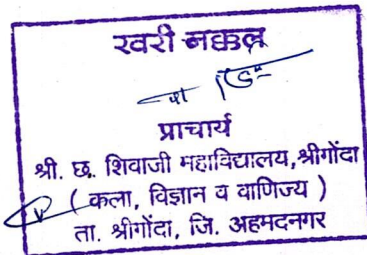 खरी नक्कल
प्राचार्य
श्री. छ. शिवाजी महाविद्यालय,श्रीगोंदा
( कला, विज्ञान व वाणिज्य )
ता. श्रीगोंदा, जि. अहमदनगर